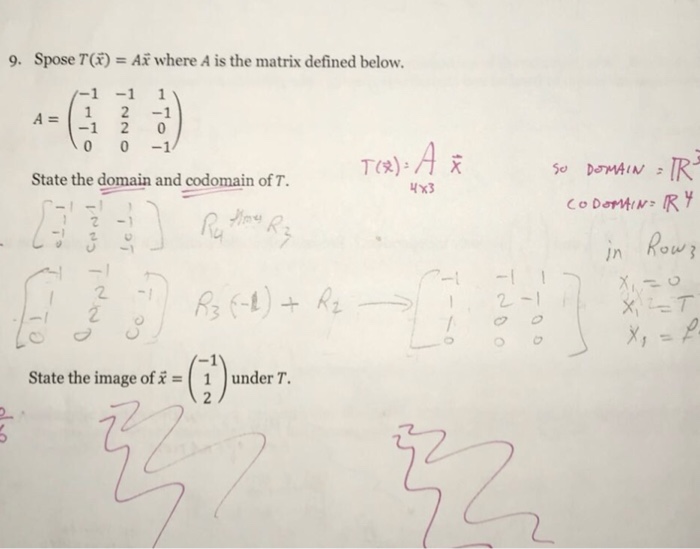 9. Spose T(x⃗) = Ax⃗ where A is the matrix defined below.
A = 
-1 -1 1
1 2 -1
-1 2 0
0 0 -1
T(x⃗) = A x⃗
4x3
SO DOMAIN = ℝ³
CODOMAIN = ℝ⁴
State the domain and codomain of T.
-1 -1 1
1 2 -1
-1 2 0
0 0 -1
R4 R3
in Row 3
-1 -1
1 2 -1
-1 2 0
0 0 0
R3 (-1) + R2 →
-1 -1 1
1 2 -1
1 0 0
0 0 0
x₁ = 0
= T
x₁ =
State the image of x⃗ = 
-1
1
2
under T.